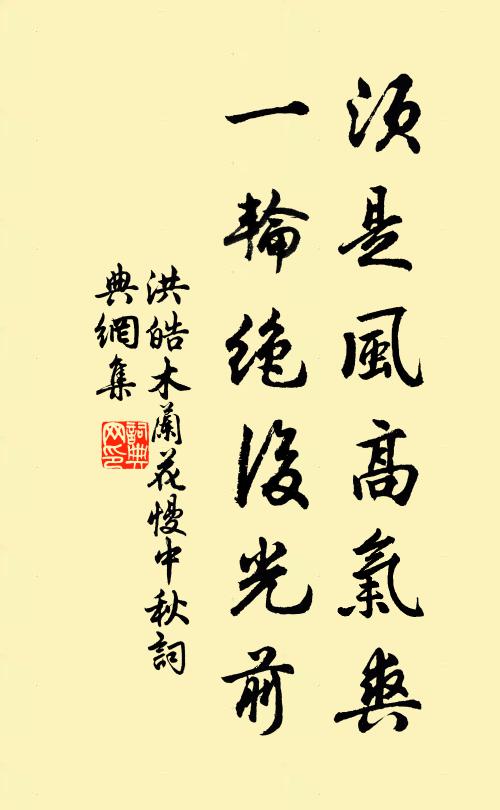 須是風高氣爽
一輪絕後光前
洪皓木蘭花慢中秋詞
典網集
詞典
网印